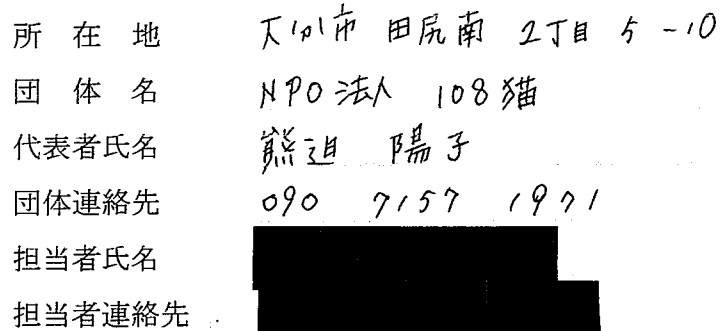 所在地 大分市 田尻南 2丁目 5-10
団体名 NPO法人 108猫
代表者氏名 熊迫 陽子
団体連絡先 090 7157 1971
担当者氏名
担当者連絡先